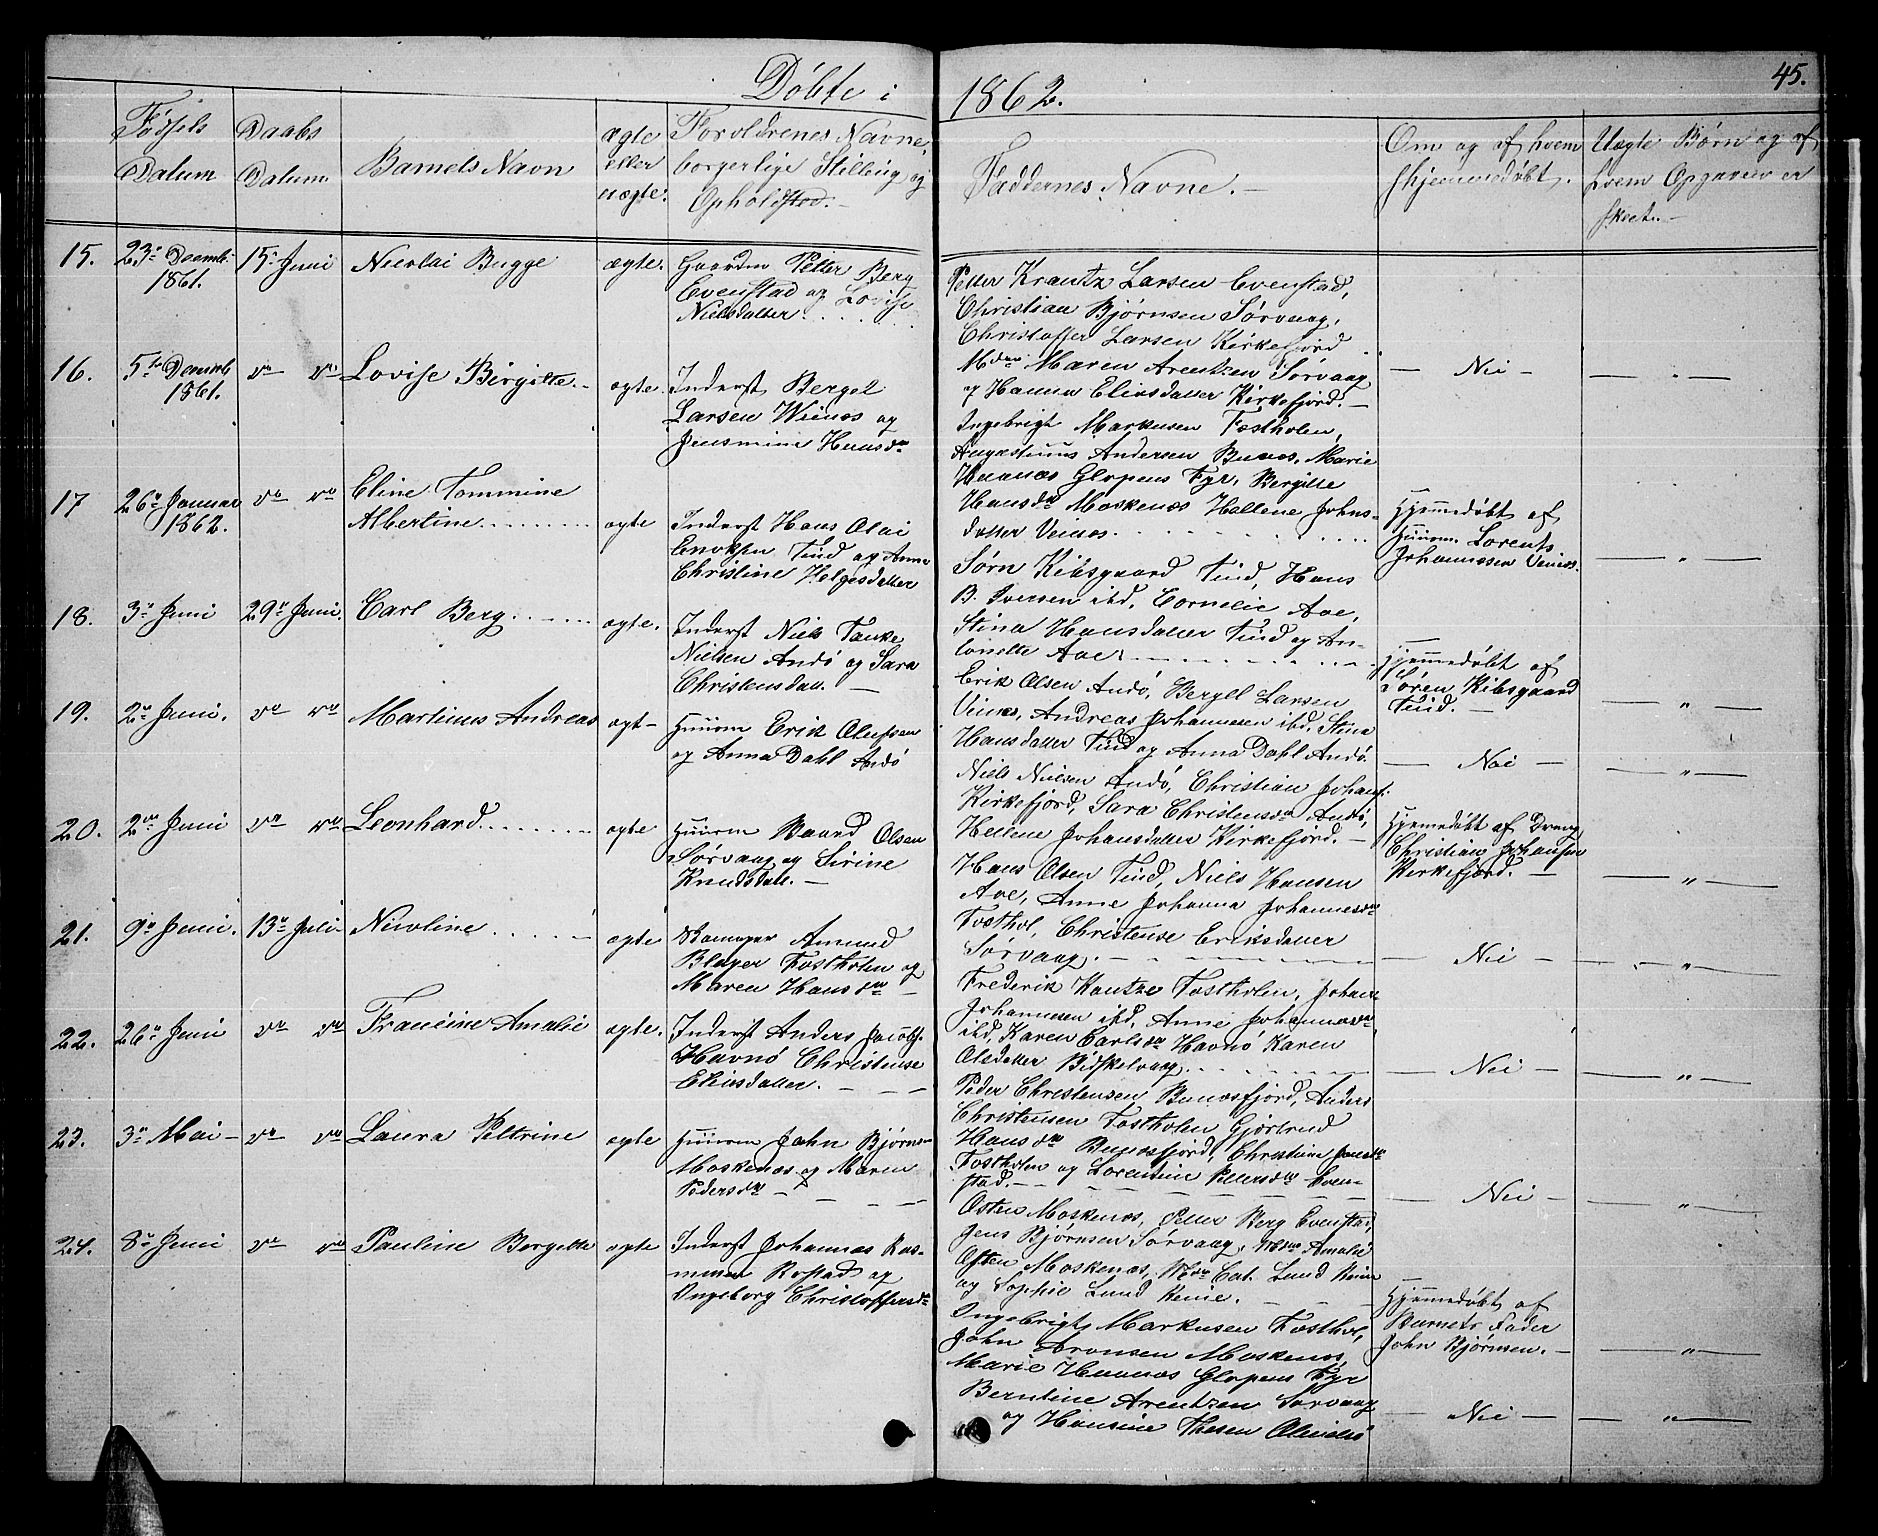 Døbte i 1862.
45.
Fødsels Datum
Daabs Datum.
Barnets Navn
ægte eller uægte.
Forældrenes Navne, borgerlige Stilling og Opholdsted.
Faddernes Navne.
Om og af hvem hjemmedøbt.
Uægte Børn og af hvem Opgaven er skeet.
15. 23de Decemb. 1861. 15de Juni Nicolai Bugge ægte. Gaardm Petter Berg
Evenstad og Lovise
Nielsdatter
Petter Krantz Larsen Evenstad,
Christian Bjørnsen Sørvaag,
Christoffer Larsen Kirkefjord
Mdm Maren Arentzen Sørvaag
og Hanna Eliasdatter Kirkefjord.
— Nei —
— " —
16. 5te Decemb 1861. do do Lovise Birgitte ægte. Inderst Bergel
Larsen Veinæs og
Jensmine Hansdr
Ingebrigt Markusen Fostholen,
Augustinus Andersen Bunæs, Marie
Hannæs Glapens Fyr, Bergitte
Hansdr Moskenæs Hellene Johns-
datter Veinæs
Hjemmedøbt af
Huusm. Lorents
Johannessen Veinæs.
— " —
17 26de Januar 1862. do do Eline Tommine
Albertine ægte Inderst Hans Olai
Enoksen Tind og Anna
Christine Helgesdatter
Sørn Kibsgaard Tind, Hans
B. Iversen ibd, Cornelie Aae,
Stina Hansdatter Tind og An-
tonette Aae
Hjemmedøbt af
Søren Kibsgaard
Tind.
— " —
18. 3de Juni 29de Juni. Carl Berg ægte. Inderst Niels Tanke
Nielsen Andø og Sara
Christensdatt.
Erik Olsen Andø, Bergel Larsen
Veinæs, Andreas Johannesen ibd, Stina
Hansdatter Tind og Anna Dahl Andø.
— Nei —
— " —
19. 2de Juni. do do Martinus Andreas ægt- Huusm Erik Olufsen
og Anna Dahl Andø
Niels Nielsen Andø, Christian Johans.
Kirkefjord, Sara Christensdr Andø,
Hellene Johansdatter Kirkefjord.
Hjemmedøbt af Dreng
Christian Johansen
Kirkefjord.
— " —
20. 2den Juni do do Leonhard ægte Huusm Baard Olsen
Sørvaag og Sirine
Knudsdatt.
Hans Olsen Tind, Niels Hansen
Aae, Anne Johanna Johannesdr
Fosthol, Christense Eriksdatter
Sørvaag.
— Nei —
— " —
21. 9de Juni. 13de Juli Nicoline ægte Amund
Fostholen og
Maren Hansdr
Frederik Kantze Fostholen, Johan
Johannesen ibd, Anne Johannesdr
ibd, Karen Carlsdr Havnø Karen
Olsdatter
— Nei —
— " —
22. 26de Juni do do Francine Amalie ægte. Inderst Anders Jacobs.
Havnø Christense
Eliasdatter.
Peder Christensen Bunæsfjord, Anders
Christensen Fostholen Gjertrud
Hansdr Bunæsfjord, Christine Jensdr
Fostholen og Lorentine Pettersdr Even-
stad.
— Nei —
— " —
23. 3de Mai do do Laura Pettrine ægte Huusm John Bjørnsen
Moskenæs og Maren
Pedersdr
Osten Moskenæs, Petter Berg Evenstad,
Jens Bjørnsen Sørvaag, Mdm Amalie
Osten Moskenæs, Mdm Cat. Lund Reine
og Sophie Lund Reine.
Hjemmedøbt af
Barnets Fader
John Bjørnsen.
— " —
24. 8de Juni do do Pauline Bergitte ægte Inderst Johannes Ras-
mussen og
Ingeborg Christoffersdr
Ingebrigt Markusen Fosthol,
John Aronsen Moskenæs,
Marie Hannæs Glapens Fyr
Berntine Arentzen Sørvaag
og Hansine Thesen
— Nei —
— " —